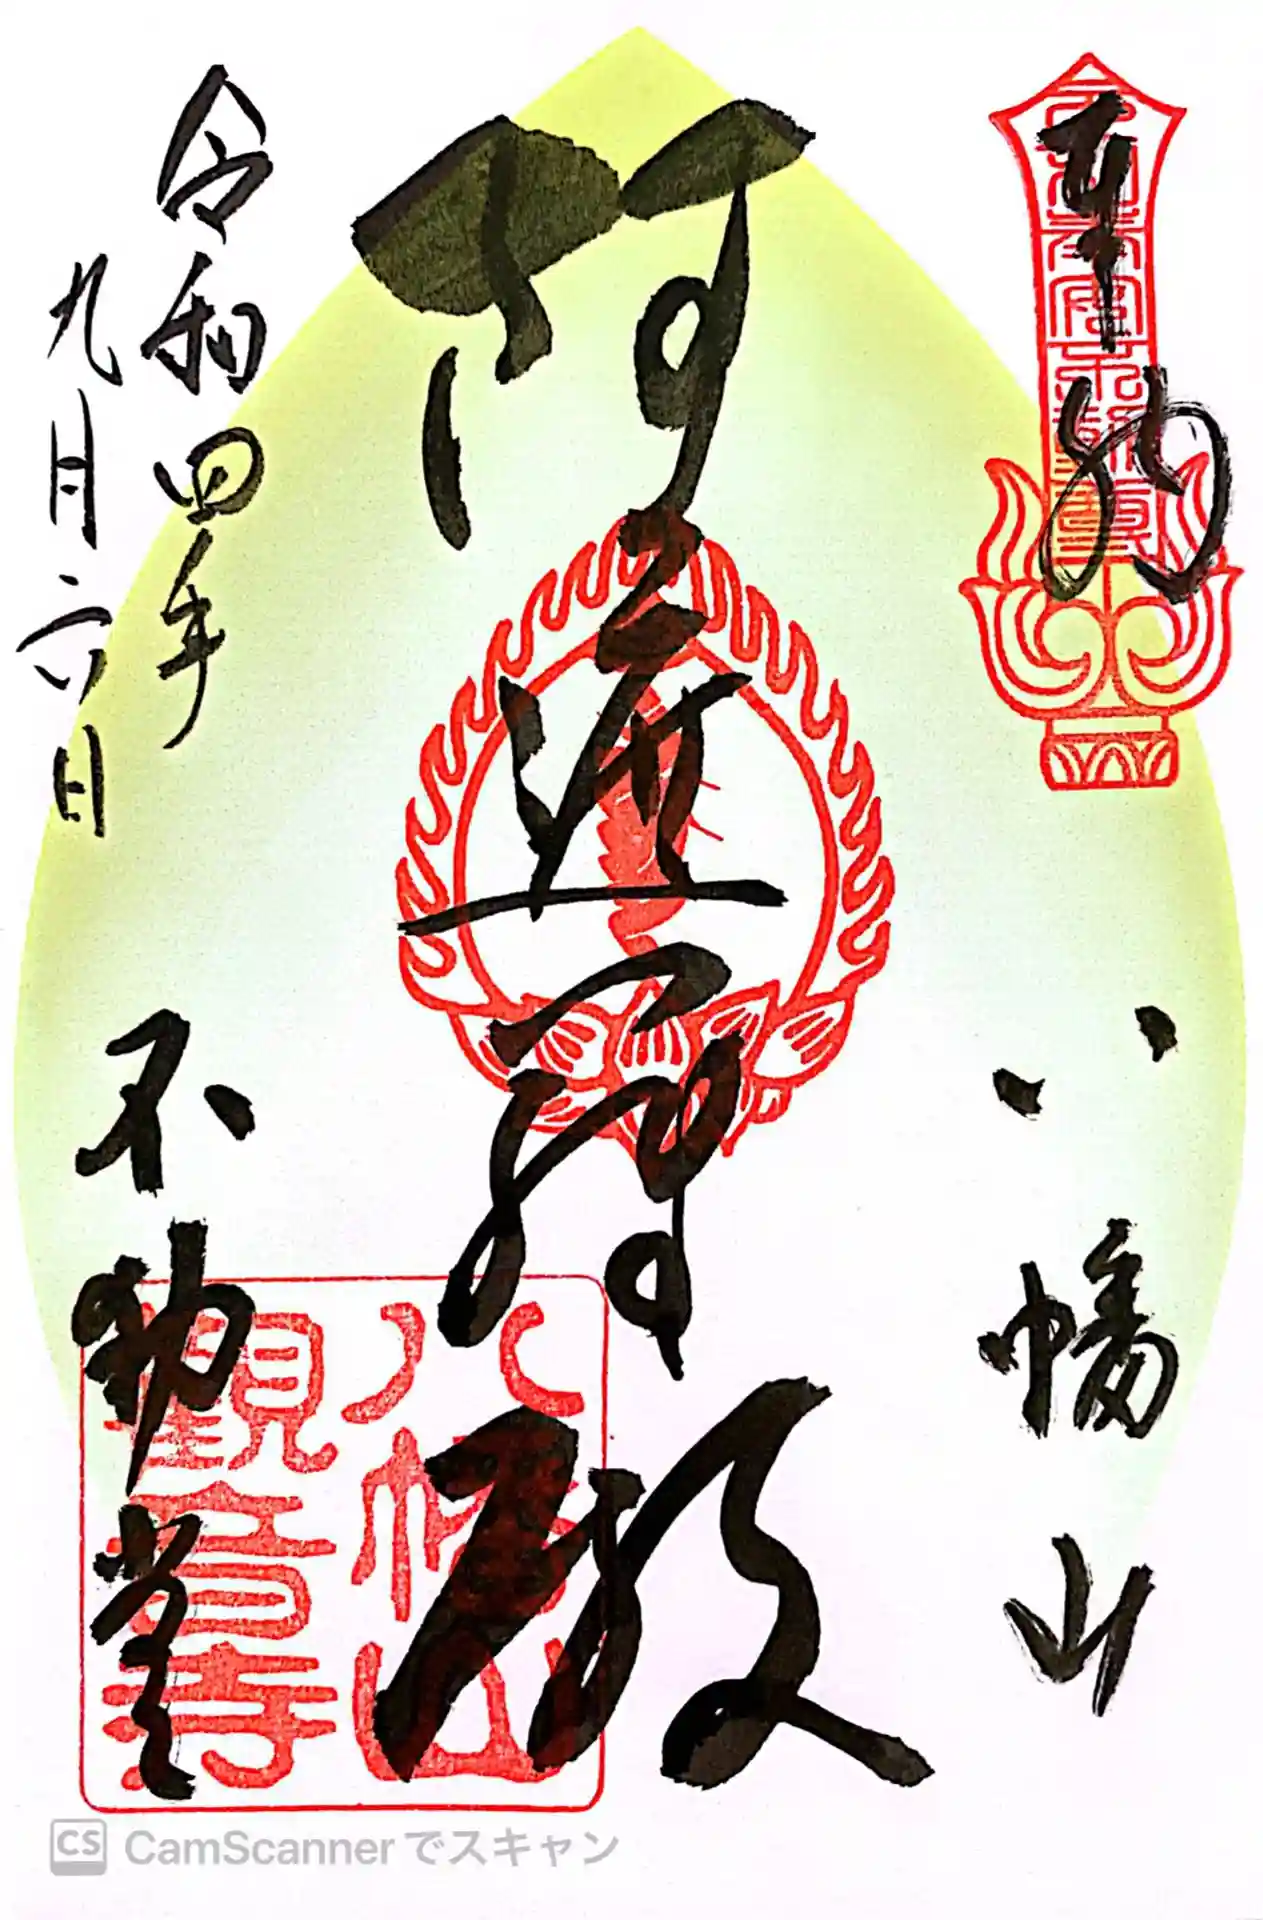 奉拝
八幡山
阿遮羅殿
令和四年
九月六日
不動堂
八幡山
観音寺
CS CamScannerでスキャン